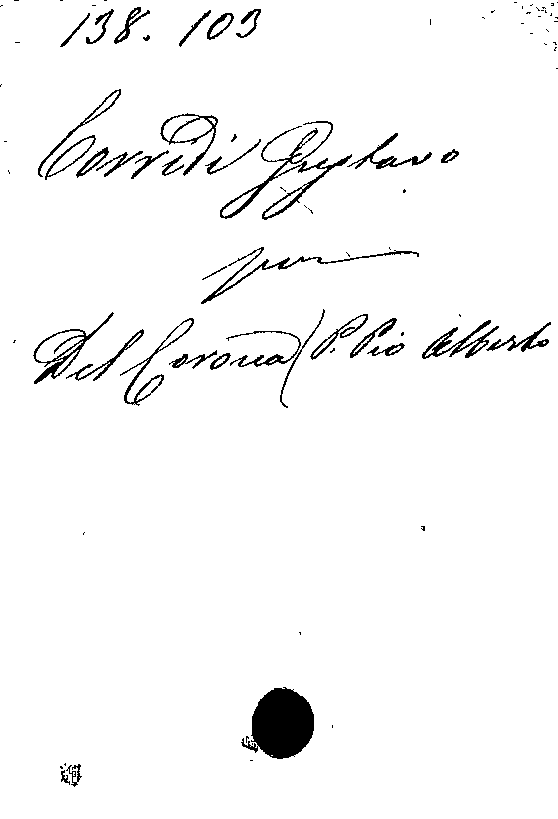 138. 103
Corridi Gustavo
per
Del Corona (P. Pio Alberto